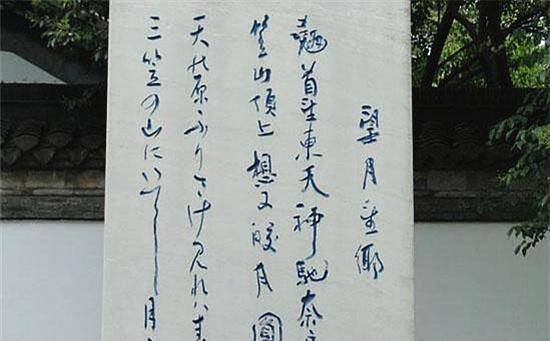 望月望鄉
翹首望東天 神馳奈
笠山頂上 想又皎月圓
天の原ふりさけ見れハ春
三笠の山にいでし月